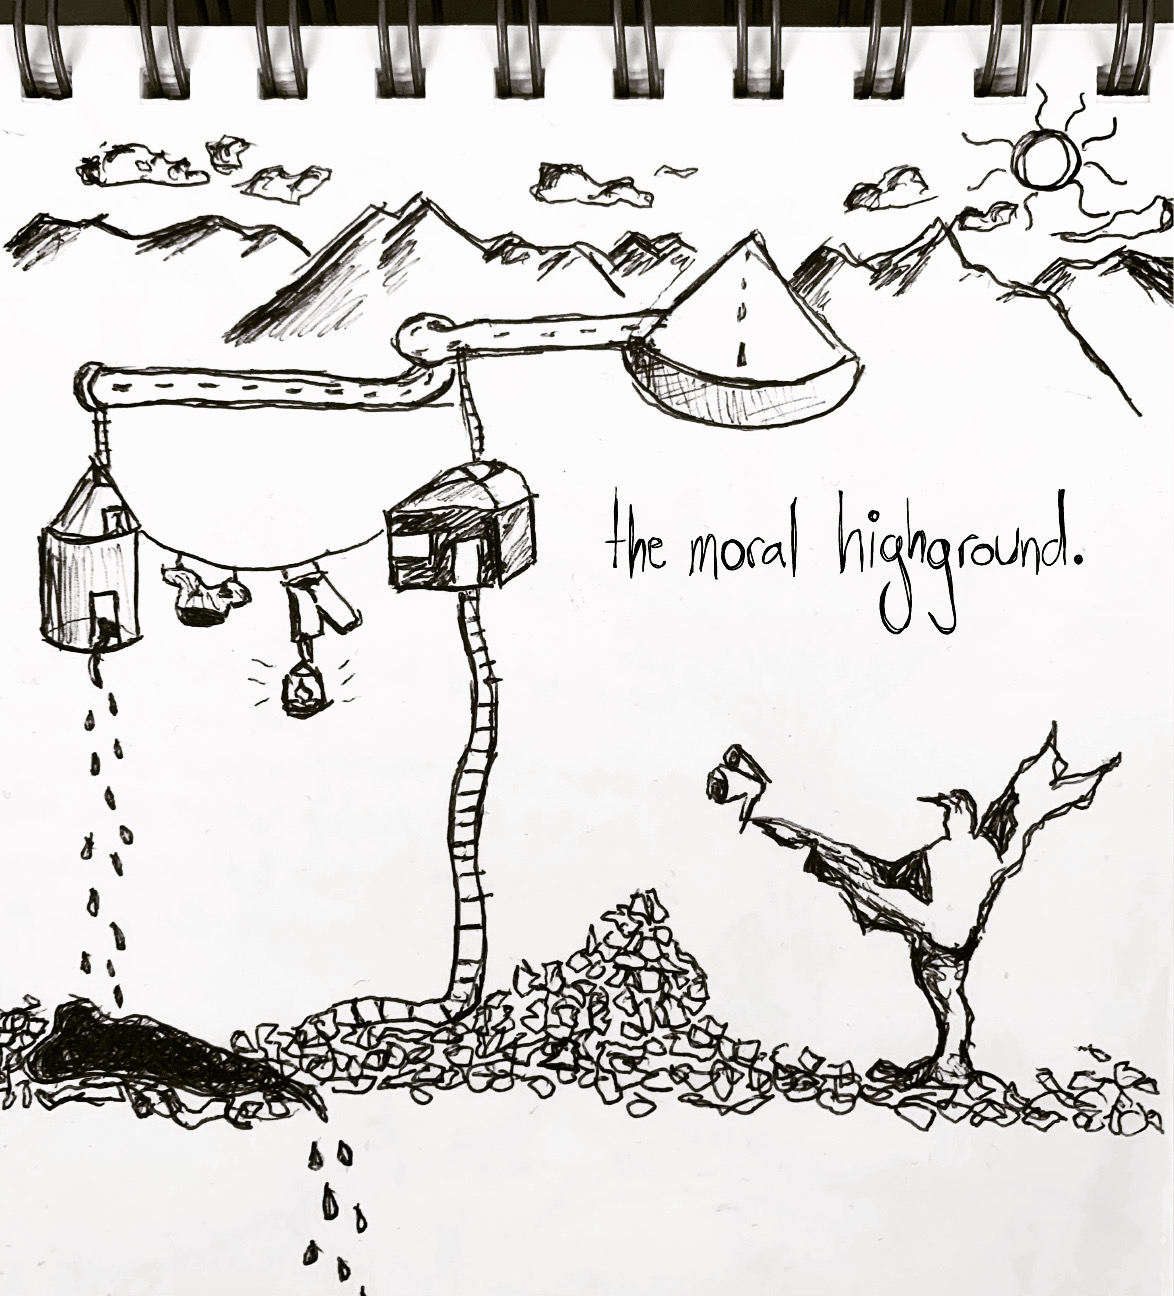 the moral highground.